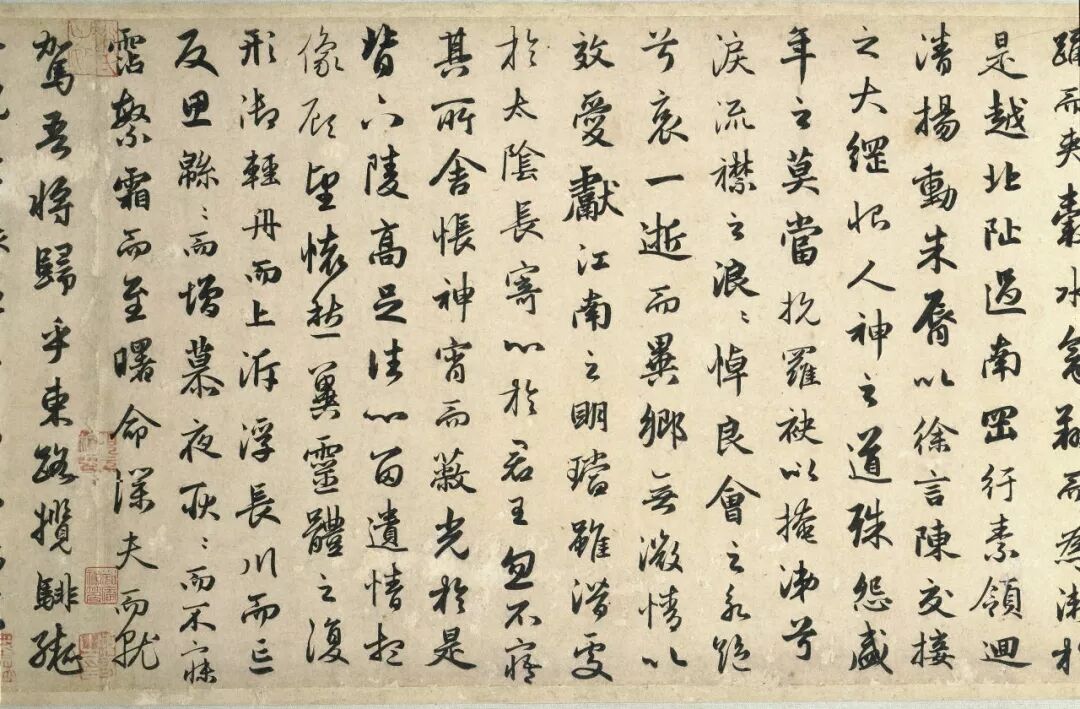 踊而夾轂水禽翔而為衛於
是越北阯過南岡行素領迴
清揚動朱脣以徐言陳交接
之大綱恨人神之道殊怨盛
年之莫當抗羅袂以掩涕兮
淚流襟之浪〻悼良會之永絕
兮哀一逝而異鄉無微情以
效愛獻江南之明璫雖潛處
於太陰長寄心於君王忽不寤
其所舍悵神宵而蔽光於是
背下陵高足往心留遺情想
像顧望懷愁冀靈體之復
形御輕舟而上泝浮長川而忘
反思緜〻而增慕夜耿〻而不寐
霑繁霜而至曙命僕夫而就
駕吾將歸乎東路攬騑轡